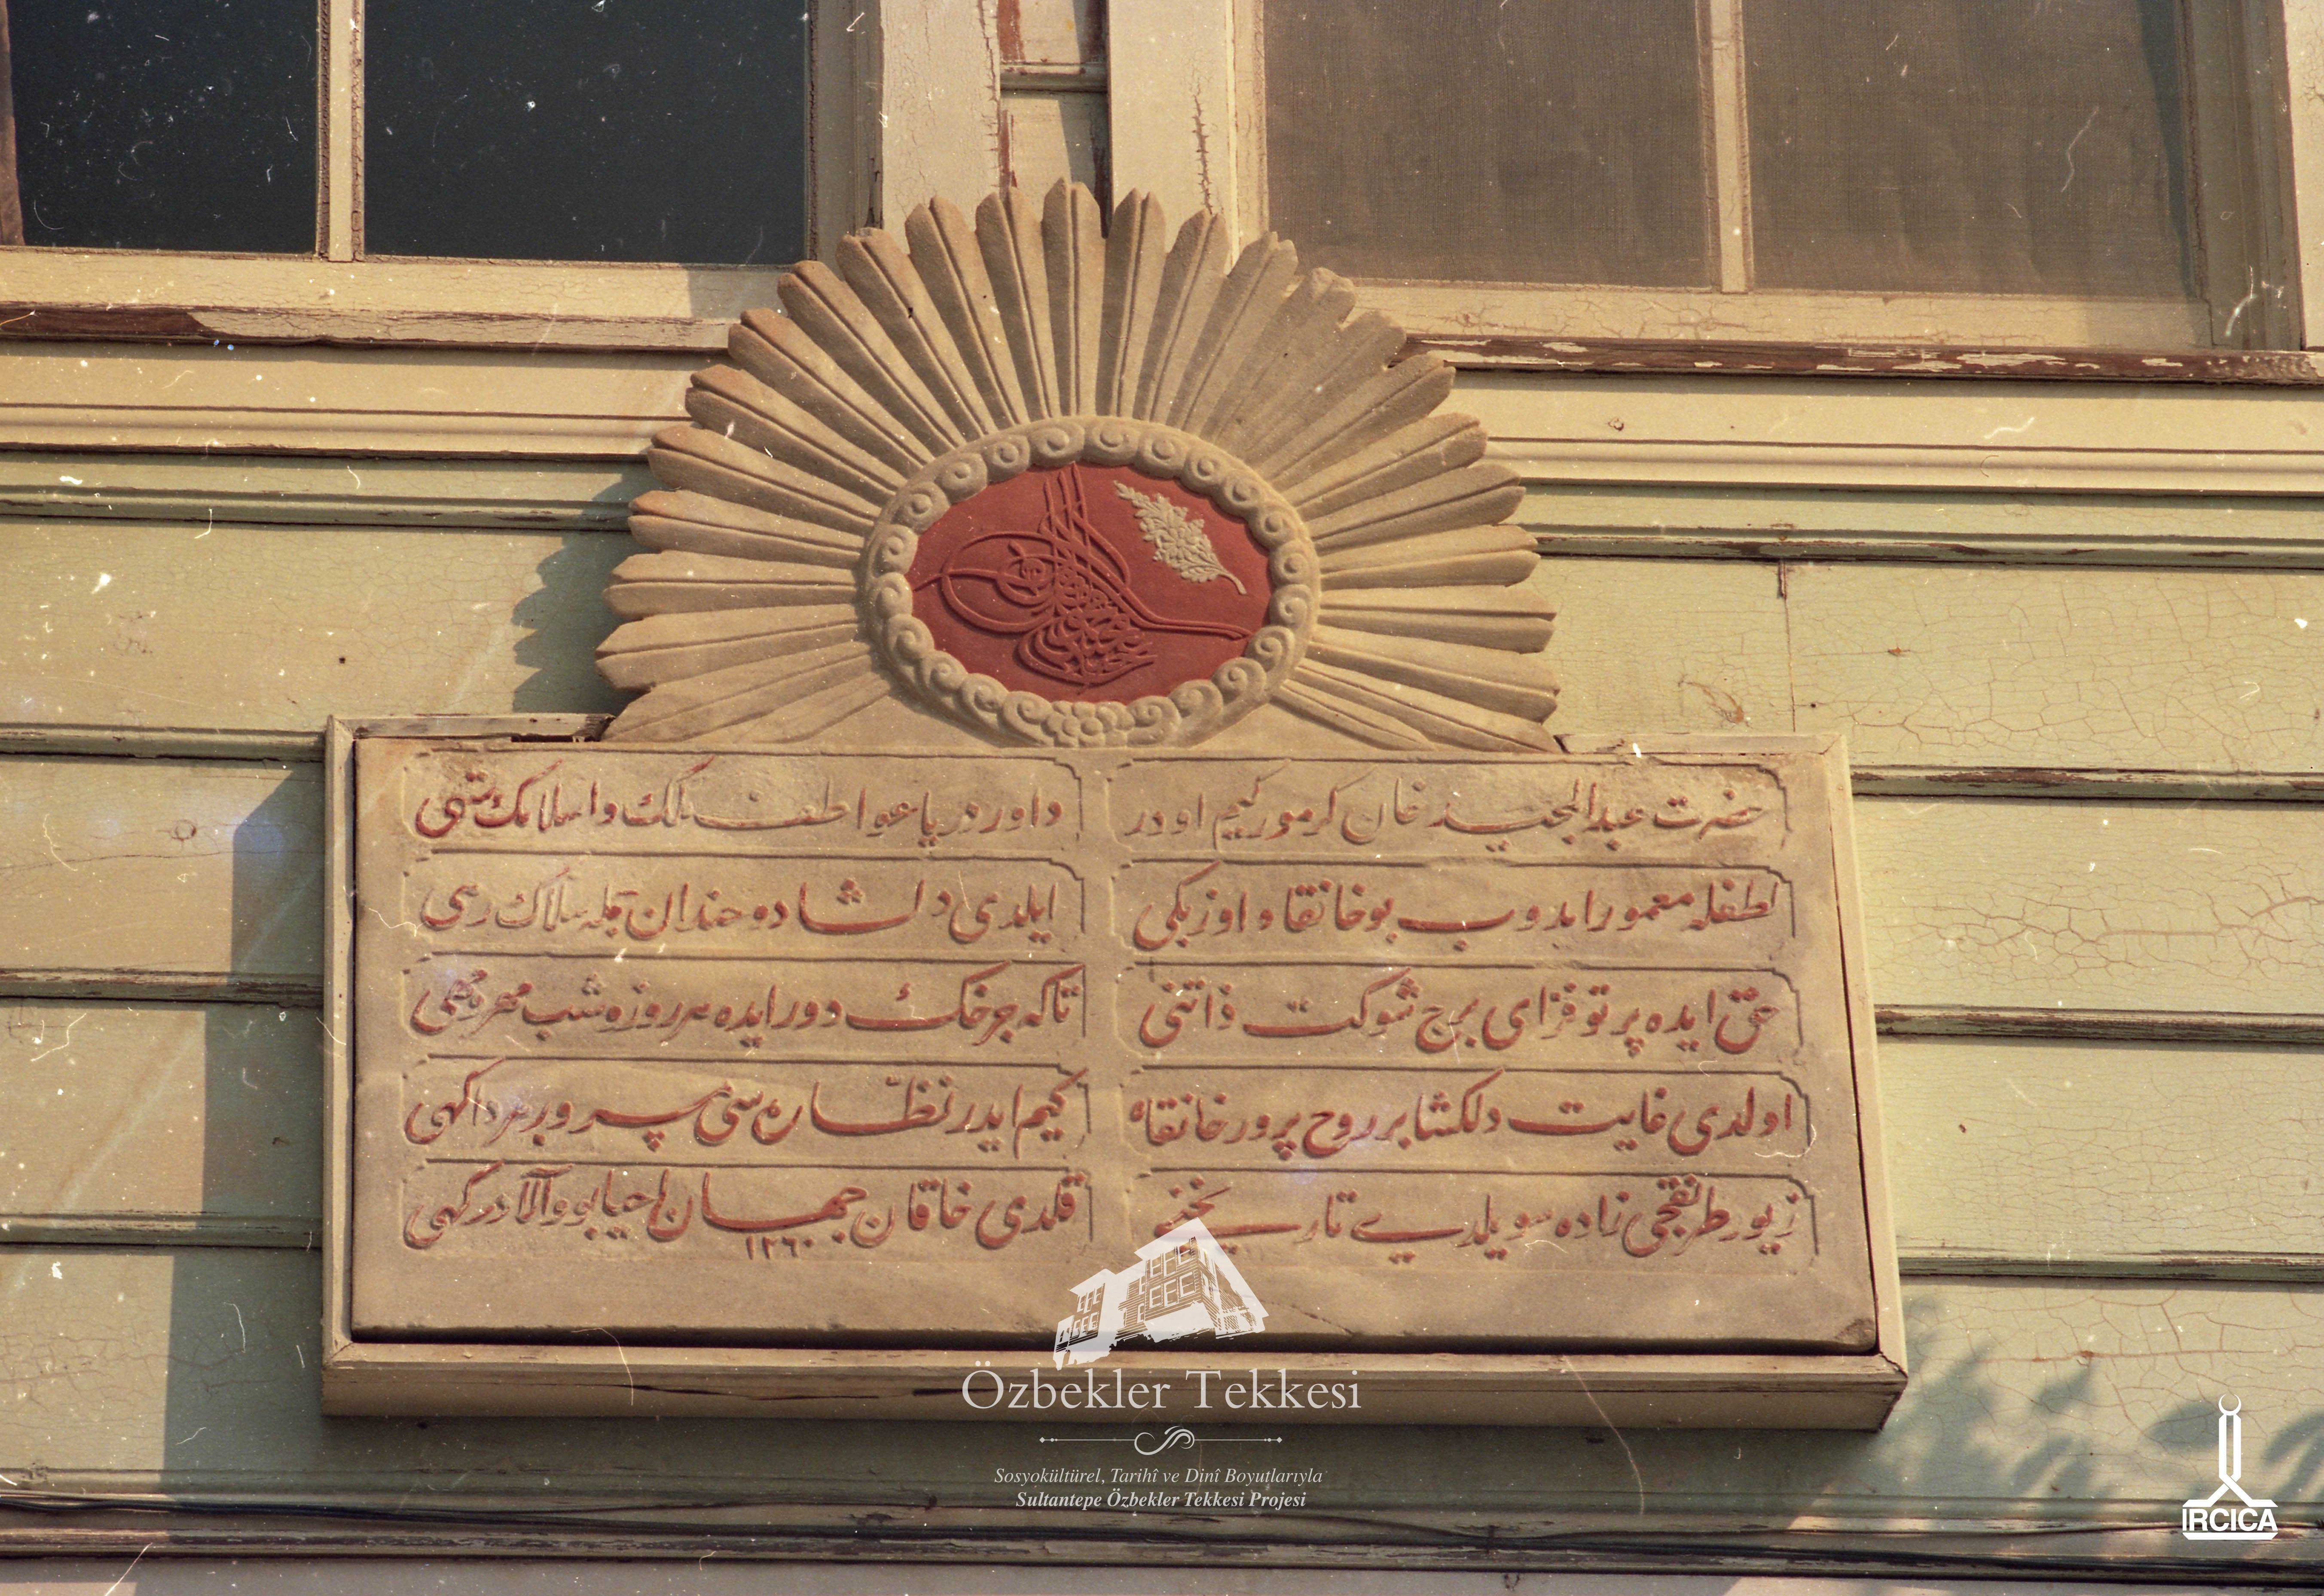 حضرت عبدالمجید خان کرمور کیم اودر
داور دریا عواطف ملك و اسلامك شهی
لطفله معمور ایدوب بو خانقاه اوزبکی
ایلدی دلشاده خندان جمله سلاك رهی
حق ایده پرتوفزای برج شوکت ذاتنی
تاکه چرخك دور ایده هر روزه شب مهر و مهی
اولدی غایت دلکشا بر روح پرور خانقاه
کیم ایدر نظاره سی پیر و بر مرد اکهی
زیور طرنقجی زاده سویلدی تاریخنی
قلدی خاقان جهان احیا بو والا درکهی
۱۲٦۰
Özbekler Tekkesi
Sosyokültürel, Tarihî ve Dinî Boyutlarıyla
Sultantepe Özbekler Tekkesi Projesi
IRCICA